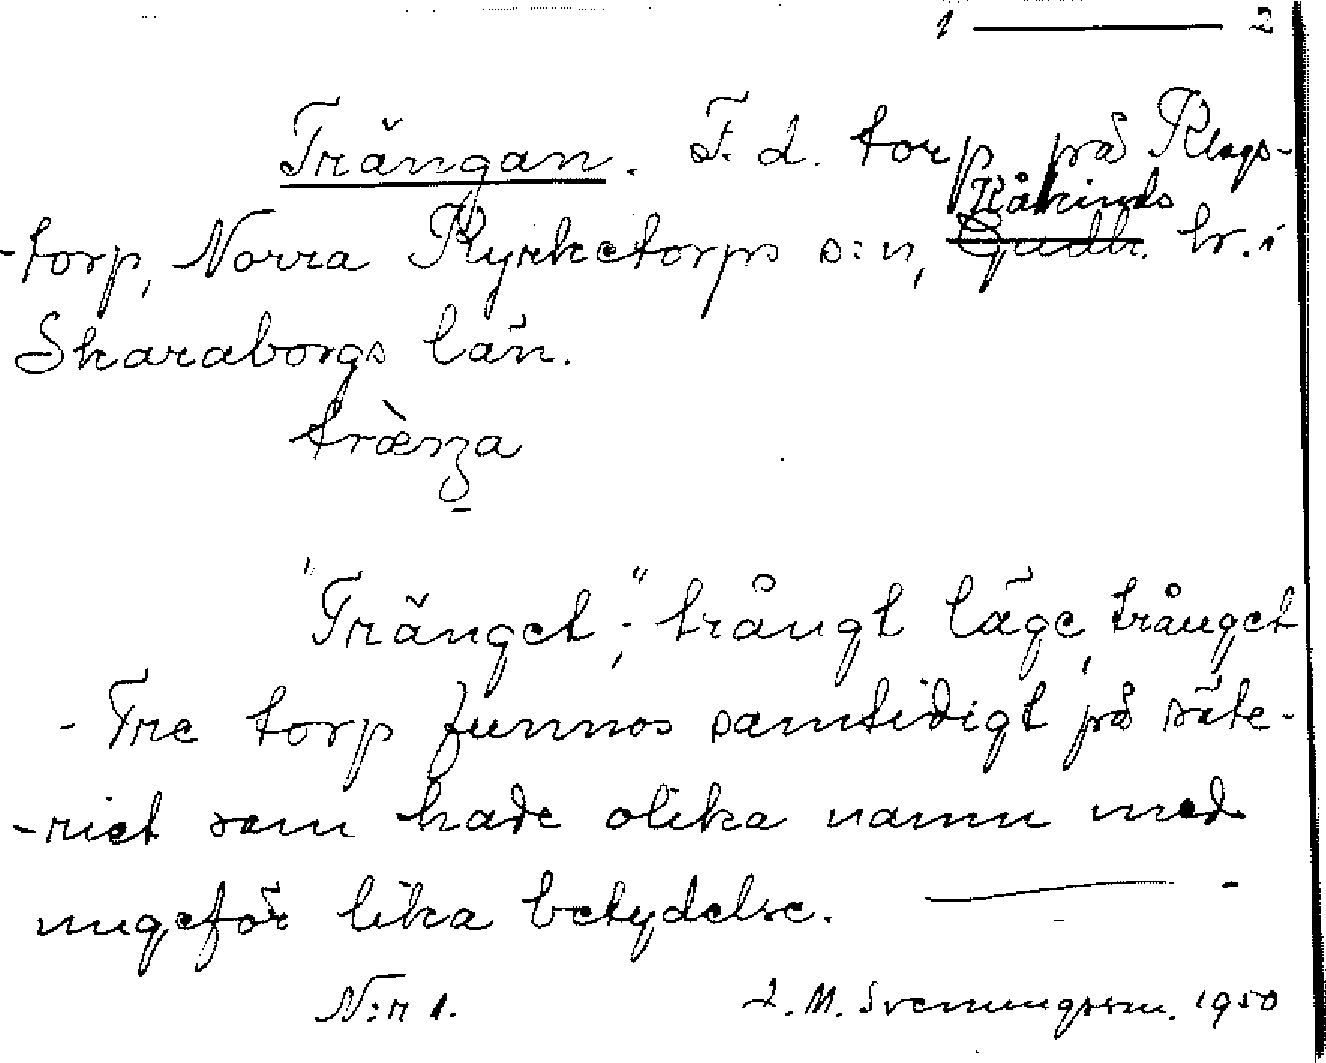 1 — 2
Trängan. F. d. torp på Klags-
Kåkinds
-torp, Norra Kyrketorps s:n, Gudh. hr. i
Skaraborgs län.
"Tränget", trångt läge, trånget
- Tre torp funnos samtidigt på säte-
-riet som hade olika namn med
ungefär lika betydelse. —
N:r 1. L. M. Svenungsson. 1950